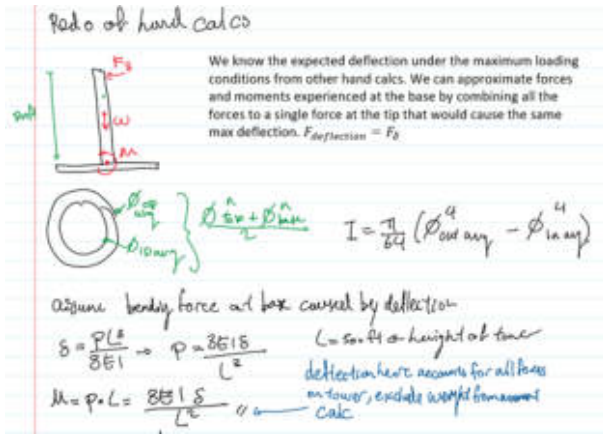 Redo of hand calcs
We know the expected deflection under the maximum loading
conditions from other hand calcs. We can approximate forces
and moments experienced at the base by combining all the
forces to a single force at the tip that would cause the same
max deflection. F_deflection = F_δ
F_δ
W
M
I = π/64 (Ø⁴ out avg - Ø⁴ in avg)
assume bending force at base caused by deflection
δ = PL³/3EI → P = 3EIδ/L³
L = 500 ft or height of tower
M = P·L = 3EIδ/L²
deflection here accounts for all forces
on tower, exclude weight from moment
calc